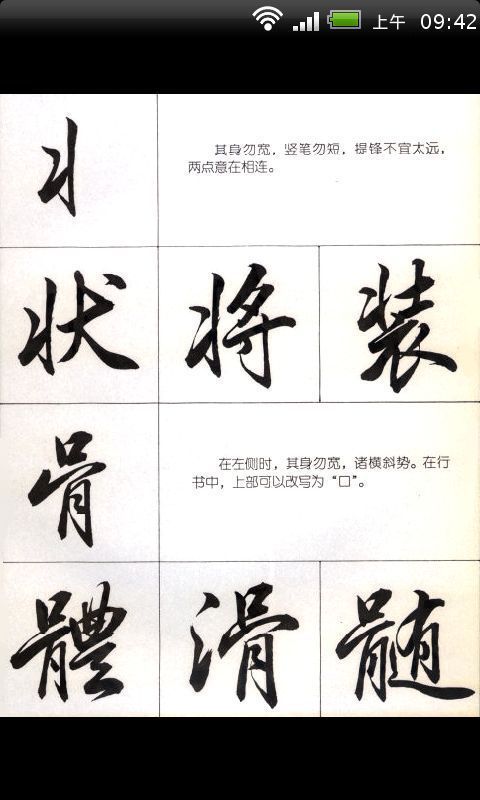 上午 09:42
丬
其身勿宽，竖笔勿短，提锋不宜太远，
两点意在相连。
状 将 装
骨
在左侧时，其身勿宽，诸横斜势。在行
书中，上部可以改写为“口”。
體 滑 髓